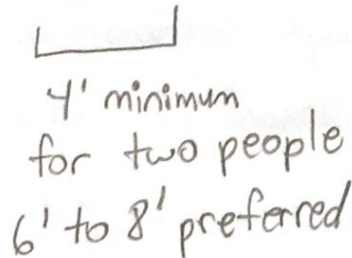 4' minimum
for two people
6' to 8' preferred